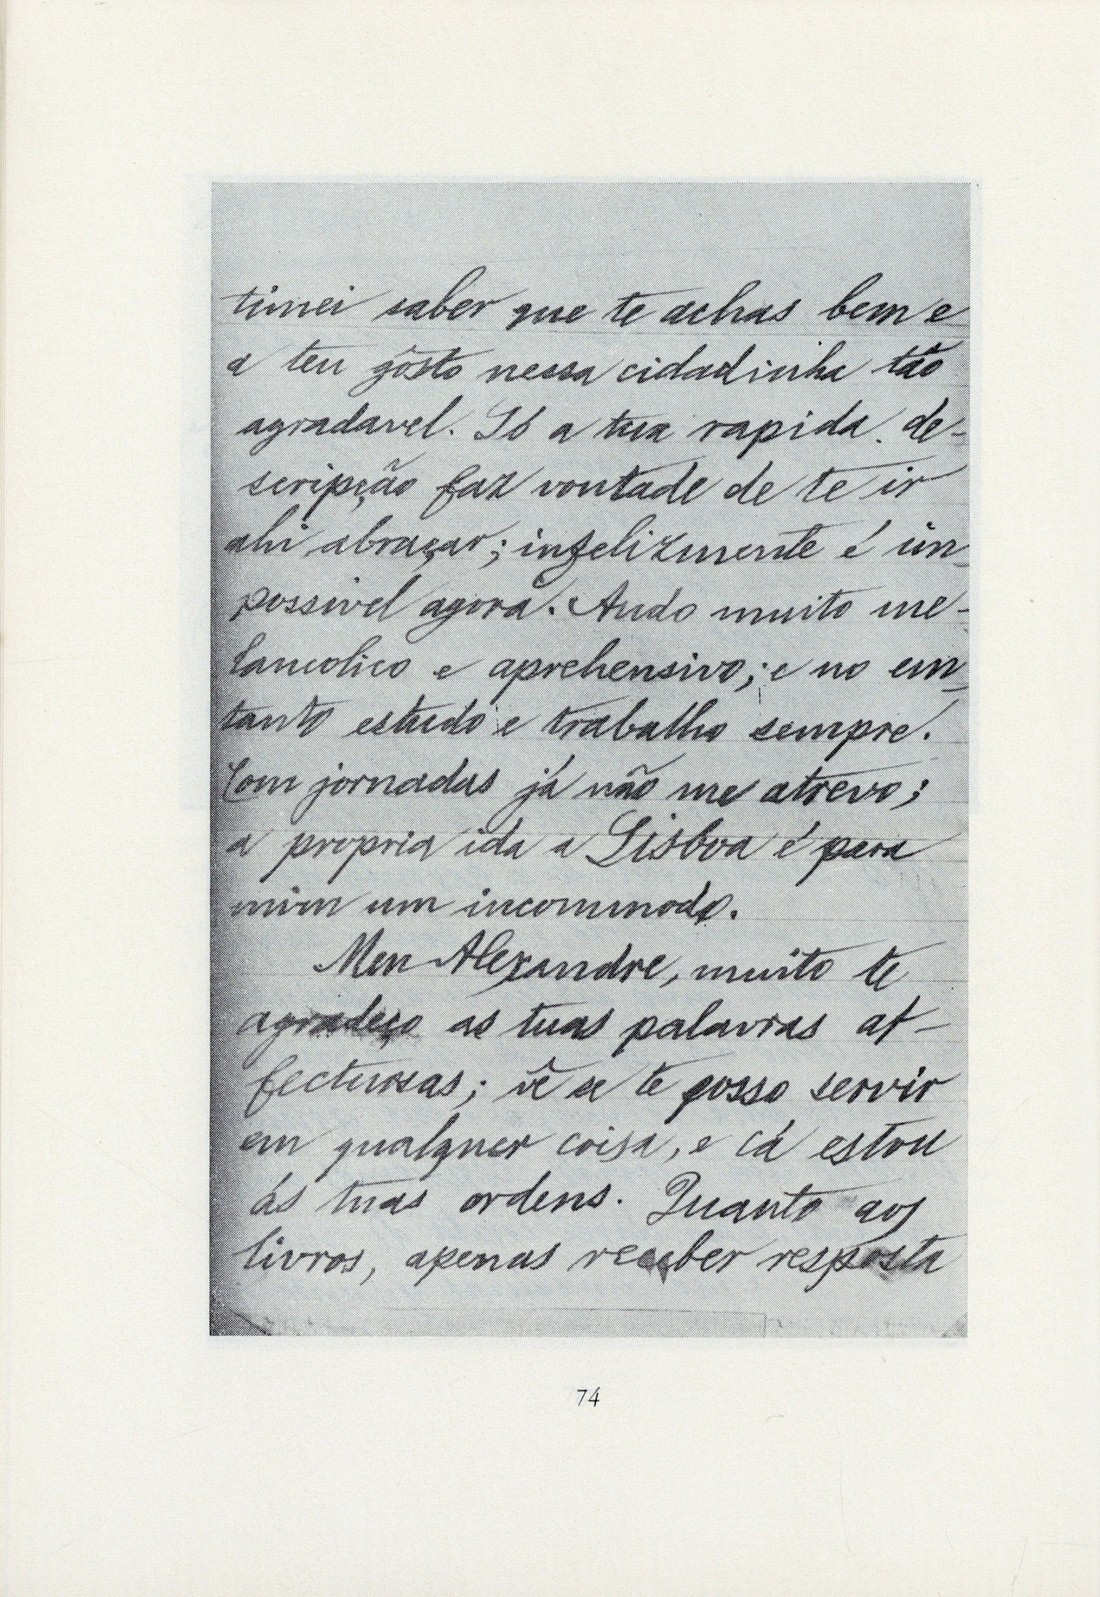 timei saber que te achas bem e
a teu gôsto nessa cidadinha tão
agradavel. Só a tua rapida de-
scripção faz vontade de te ir
ahi abraçar; infelizmente é im-
possivel agora. Ando muito me-
lancolico e aprehensivo; e no em-
tanto estudo e trabalho sempre.
Com jornadas já não me atrevo;
a propria ida a Lisboa é para
mim um incommodo.
Meu Alexandre, muito te
agradeço as tuas palavras af-
fectuosas; vê se te posso servir
em qualquer coisa, e cá estou
ás tuas ordens. Quanto aos
livros, apenas receber resposta
74